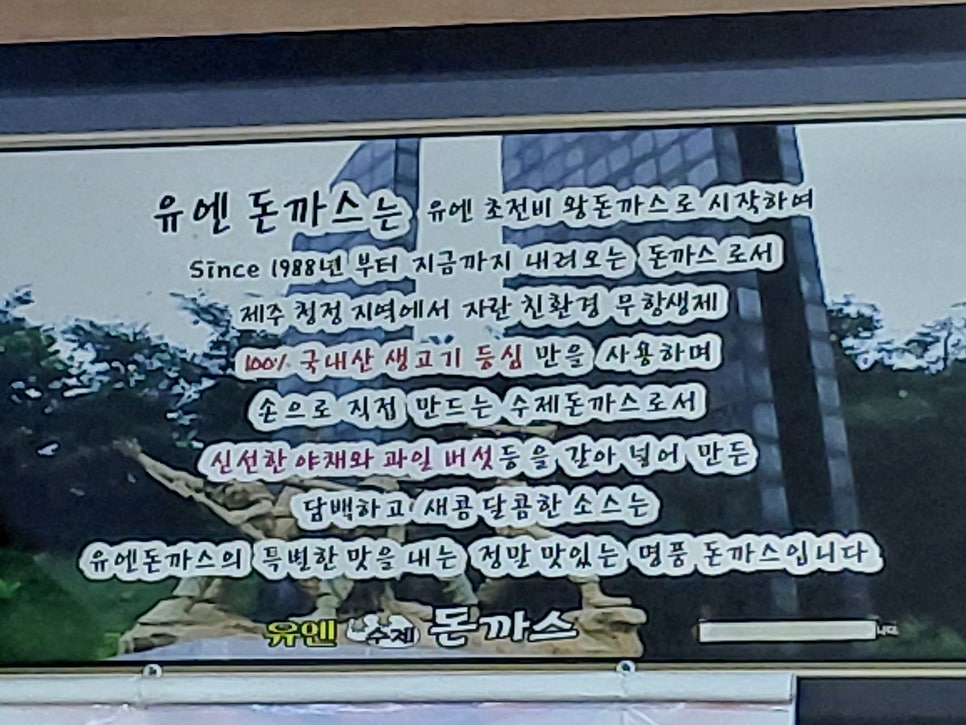 유엔 돈까스는 유엔 초전비 왕돈까스로 시작하여
Since 1988년 부터 지금까지 내려오는 돈까스로서
제주 청정 지역에서 자란 친환경 무항생제
100% 국내산 생고기 등심 만을 사용하며
손으로 직접 만드는 수제돈까스로서
신선한 야채와 과일 버섯등을 갈아 넣어 만든
담백하고 새콤달콤한 소스는
유엔돈까스의 특별한 맛을 내는 정말 맛있는 명품 돈까스입니다
유엔 수제 돈까스